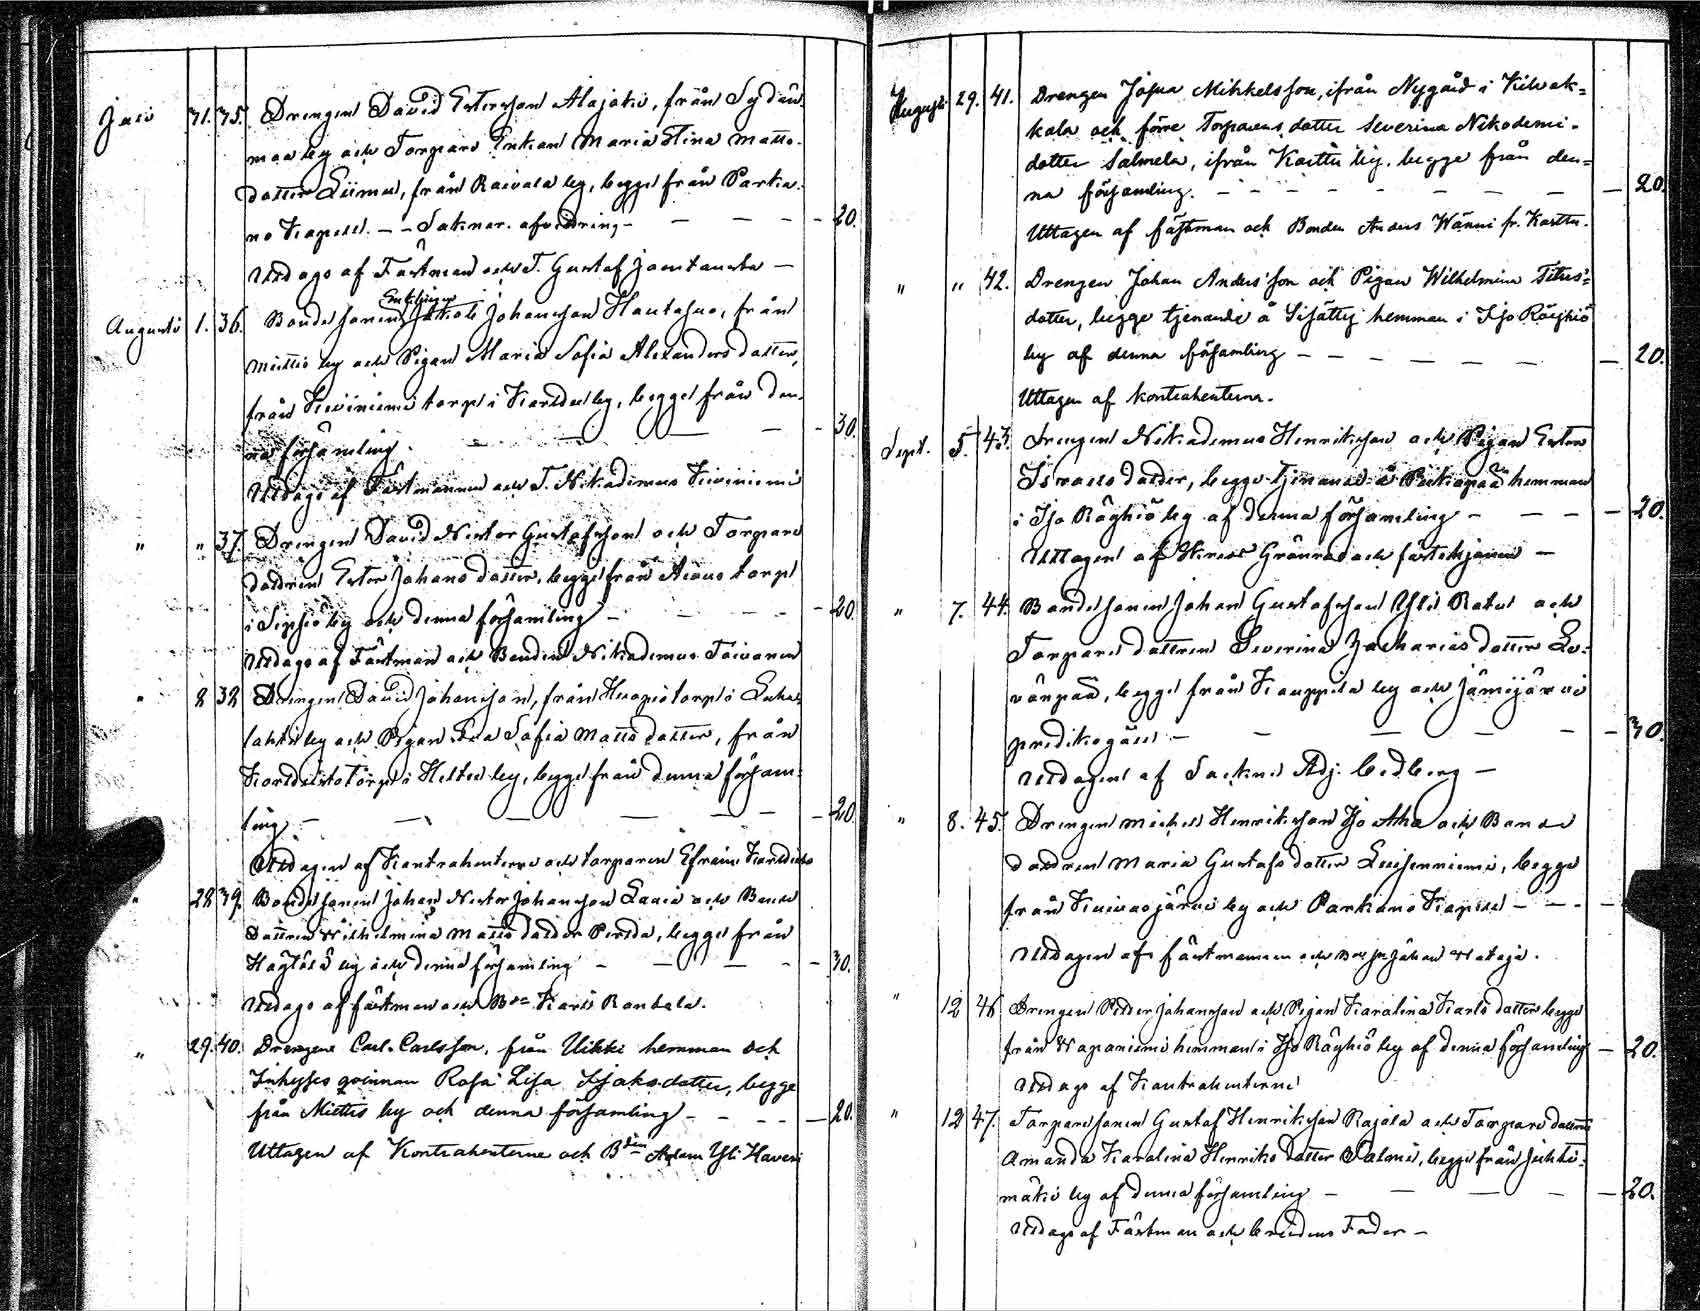 Juli 31. 35. Drengen David Estersson Alajoki, från Sydän-
maa by och Torpare Enkan Maria Stina Matts-
dotter Liimu, från Raivala by, begge från Parka-
no Kapell. - - Saknar afvidring - - - - 20.
Uttags af Fästman och T. Gustaf
Augusti 1. 36. Bondesonen Enklingen Jakob Johansson Hautaluo, från
Miettis by och Pigan Maria Sofia Alexandersdotter,
från Kiviniemi torp i Karttu by, begge från den-
na församling. - - - - 30.
Uttags af Fästmannen och T. Nikodemus Kiviniemi
" " 37. Drengen David Nestor Gustafsson och Torpare
dottren Ester Johansdotter, begge från torp
i by och denna församling - - - - 20.
Uttags af Fästman och Bonden Nikodemus Toivonen
" 8 38 Drengen David Johansson, från torp i Luha-
lahti by och Pigan Eva Sofia Mattsdotter, från
torp i by, begge från denna försam-
ling - - - - - 20.
Uttagen af Kontrahenterne och torparen Efraim
" 28 39. Bondesonen Johan Nestor Johansson och Bonde
Dottren Wilhelmina Mattsdotter Pertta, begge från
by och denna församling - - - - 30.
Uttags af fästman och Bon Karl Rantala.
" 29. 40. Drengen Carl Carlsson, från Uikki hemman och
Inhysses qvinnan Rosa Lisa Isaksdotter, begge
från Miettis by och denna församling - - - - 20.
Uttagen af Kontrahenterne och Bden Adam Yli Haveri
Augusti 29. 41. Drengen Josua Mikkelsson, ifrån Nygård i Kilvak-
kala och förre Torparens dotter Severina Nikodemi-
dotter Salmela, ifrån Karttu by, begge från den-
na församling. - - - - - - - 20.
Uttagen af fästman och Bonden Anders Wänni fr. Karttu.
" " 42. Drengen Johan Andersson och Pigan Wilhelmina Titus-
dotter, begge tjenande å Sisättö hemman i Iso Röyhiö
by af denna församling - - - - - - 20.
Uttagen af kontrahenterna.
Sept. 5. 43. Drengen Nikodemus Henriksson och Pigan Ester
Israelsdotter, begge tjenande å hemman
i Iso Röyhiö by af denna församling - - - - 20.
Uttagen af Herr Grönroos och fästehjonen -
" 7. 44. Bondesonen Johan Gustafsson Yli Rätö och
Torparedottren Severina Zachariasdotter Le-
vänpää, begge från Kauppila by och Jämijärvi
predikogäll - - - - - - 30.
Uttagen af Sockne Adj. Cedberg -
" 8. 45. Drengen Michel Henriksson Iso Aho och Bonde
dottren Maria Gustafsdotter Leiseniemi, begge
från Kuivasjärvi by och Parkano Kapell - - - -
Uttagen af fästmannen och Johan Hataja.
" 12 46 Drengen Petter Johansson och Pigan Karolina Karlsdotter begge
från Waponiemi hemman i Iso Röyhiö by af denna församling - 20.
Uttags af Kontrahenterne
" 12 47. Torparesonen Gustaf Henriksson Rajala och Torparedottren
Amanda Karolina Henriksdotter Salmi, begge från Juhti-
mäki by af denna församling - - - - - 20.
Uttags af Fästman och brudens Fader -